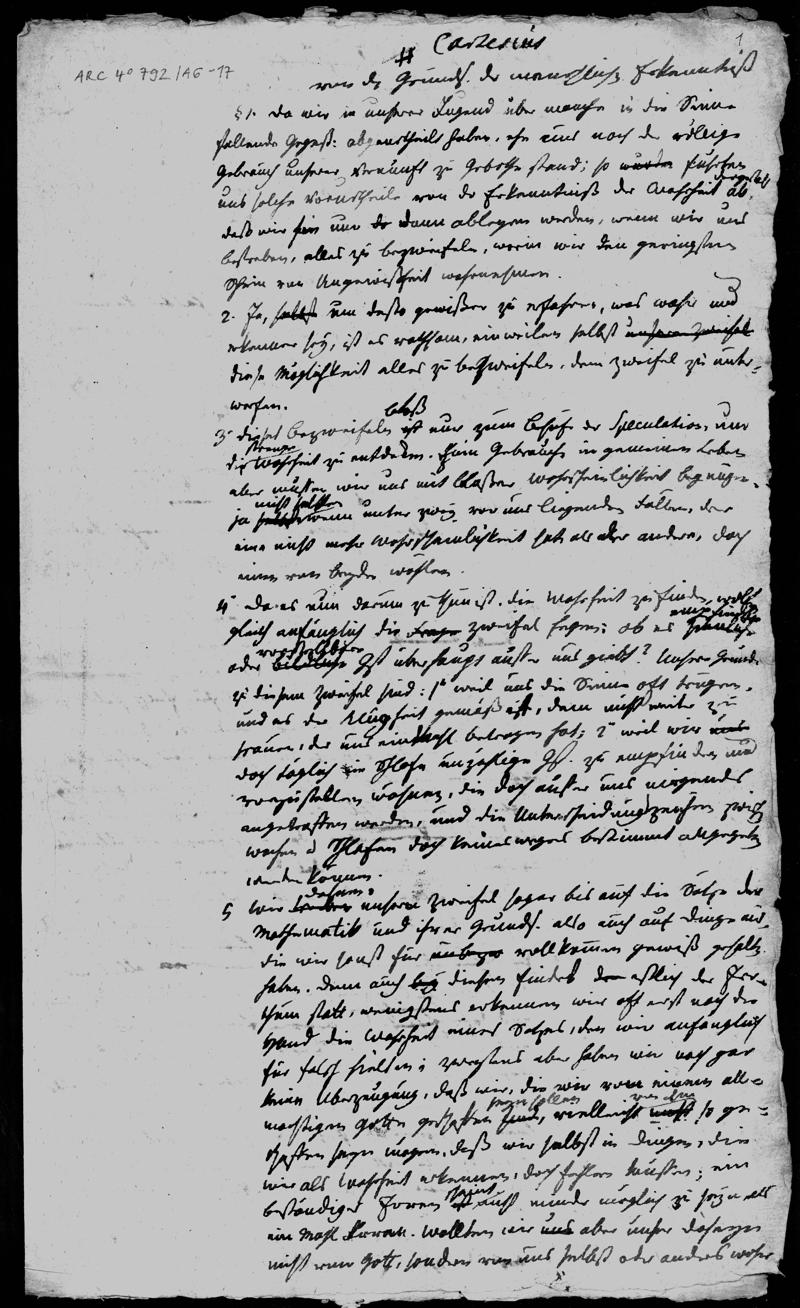 1
Cartesius
ARC 4° 792/A6-17
von den Grunds. der menschlich. Erkenntniß
§ 1. Da wir in unserer Jugend über manche in die Sinne
fallende Gegenst: abgeurtheilt haben, ehe uns noch der völlige
Gebrauch unserer Vernunft zu Gebothe stand; so wurden führten
uns solche Vorurtheile von der Erkenntniß der Wahrheit ab, dergestalt
daß wir sie nur dann ablegen werden, wenn wir uns
bestreben, alles zu bezweifeln, worin wir den geringsten
Schein von Ungewißheit wahrnehmen.
2. Ja, selbst um desto gewißer zu erfahren, was wahr und
erkennbar sey, ist es rathsam, einweilen selbst unseren Zweifel
diese Möglichkeit alles zu bezweifeln, dem Zweifel zu unter-
werfen.
bloß
3. dieses bezweifeln ist nur zum Behuf der Speculation, um
strenge
die Wahrheit zu entdecken. Zum Gebrauche im gemeinen Leben
aber müssen wir uns mit bloßer Wahrscheinlichkeit begnügen,
nicht selten
ja selbst wenn unter zwey vor uns liegenden Fällen, der
eine nicht mehr Wahrscheinlichkeit hat, als der andere, doch
einen von beyden wählen.
4. Da es nun darum zu thun ist, die Wahrheit zu finden,
gleich anfänglich die Frage Zweifel sagen: ob es
oder bildliche Gst überhaupt außer uns giebt? Unsere Gründe
zu diesem Zweifel sind: 1° weil uns die Sinne oft trügen,
und es der Klugheit gemäß ist, dem nicht weiter zu
trauen, der uns einmahl betrogen hat; 2° weil wir uns
doch täglich im Schlafe unzählige Gst. zu empfinden und
vorzustellen wähnen, die doch außer uns nirgends
angetroffen werden, und die Unterscheidungszeichen zwisch
wachen u Schlafen doch keineswegs bestimmt angegeben
werden können.
dehnen
5 Wir unsern Zweifel sogar bis auf die Sätze der
Mathematik und ihrer Grunds. also auch auf Dinge aus,
die wir sonst für vollkommen gewiß gehalt.
haben. Denn auch bey diesen findet erstlich der Irr-
thum statt, wenigstens erkennen wir oft erst nach der
Hand die Wahrheit eines Satzes, den wir anfänglich
für falsch hielten; zweytens aber haben wir noch gar
keine Überzeugung, daß wir, die wir von einem all-
seyn sollen von ihm
mächtigen Gotte geschaffen sind, vielleicht nicht so ge-
schaffen seyn mögen, daß wir selbst in Dingen, die
wir als Wahrheit erkennen, doch fehlen müssen; ein
scheint
beständiges Irren ist nicht minder möglich zu seyn als
ein Mahl Irren. Wollten wir uns aber unser Daseyn
nicht von Gott, sondern von uns selbst oder anders woher